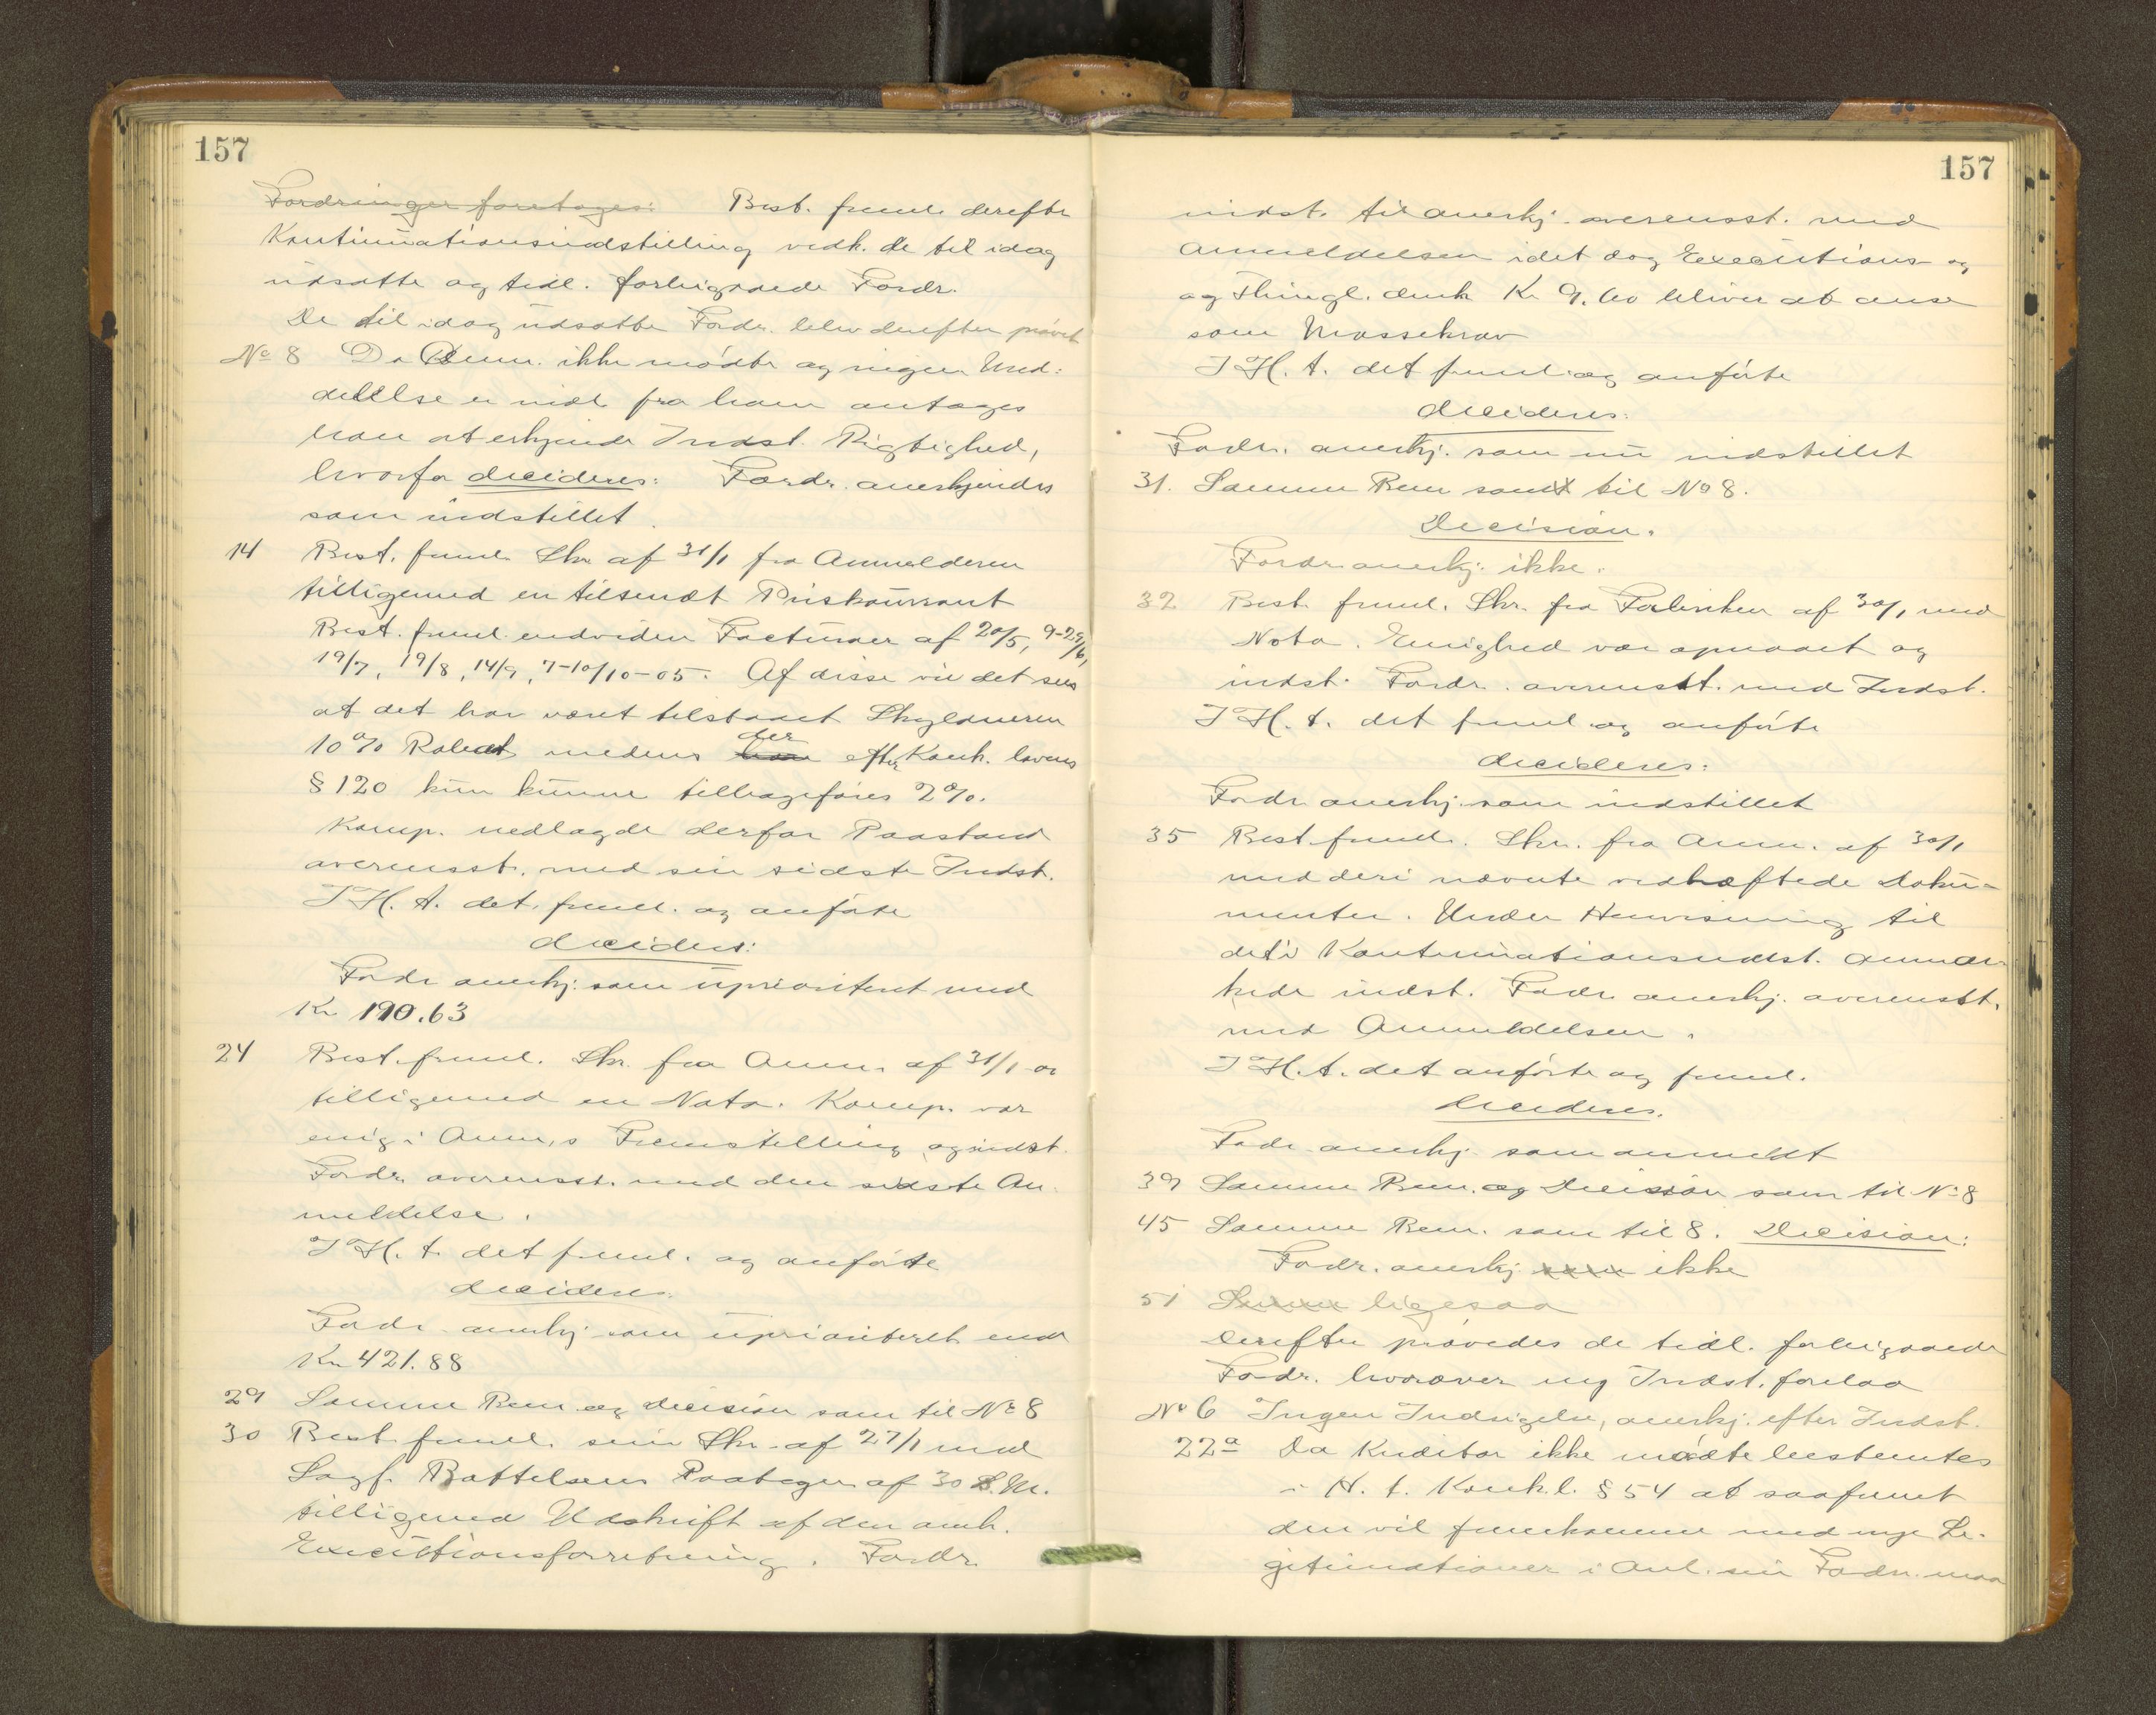 157
Fordringer foretages: Best. freml. derefter
Kontinuationsindstilling vedk. de til idag
udsatte og tidl. forbigaaede Fordr.
De til idag udsatte Fordr. blev derefter prøvet
No 8 Da Anm. ikke mødte og ingen Med:
delelse er indl. fra ham antages
han at erkjende Indst. Rigtighed,
hvorfor decideres: Fordr. anerkjendes
som indstillet.
14 Best. freml. Skr. af 31/1 fra Anmelderen
tilligemed en tilsendt Priskourant
Best. freml. endvidere Facturaer af 20/5, 9-29/6,
19/7, 19/8, 14/9, 7-10/10-05. Af disse vil det sees
at det har været tilstaaet Skyldneren
10% Rabat medens der efter Konk. lovens
§ 120 kun kunne tilbageføres 2%.
Komp. nedlagde derfor Paastand
overensst. med sin sidste Indst.
I H. t. det freml. og anførte
decideres:
Fordr anerkj. som uprioriteret med
Kr 190.63
24 Best. freml. Skr. fra Anm. af 31/1
tilligemed en Nota. Komp. var
enig i Anm,s Fremstilling og indst.
Fordr. overensst. med den sidste An-
meldelse.
I H. t. det freml. og anførte
decideres.
Fordr anerkj som uprioriteret med
Kr 421.88
29 Samme Bem og decision som til No 8
30 Best. freml. sin Skr. af 27/1 med
Sagf. Battelsens Paategn af 30 D.M.
tilligemed Udskrift af den omh.
Executionsforretning. Fordr.
157
indst. til anerkj. overensst. med
Anmeldelsen idet dog Executions og
og Thingl. omk Kr 9.60 bliver at anse
som Massekrav
I H. t. det freml. og anførte
decideres:
Fordr. anerkj. som nu indstillet
31. Samme Bem som til No 8.
Decision.
Fordr anerkj. ikke.
32 Best. freml. Skr. fra Fabriken af 30/1 med
Nota. Enighed var opnaaet og
indst. Fordr. overensst. med Indst.
I H. t. det freml og anførte
decideres:
Fordr anerkj. som indstillet
35 Best freml. Skr. fra Anm. af 30/1
med deri nævnte vedhæftede Doku-
menter. Under Henvisning til
det i Kontinuationsindst. anmær-
kede indst. Fordr anerkj. overensst.
med Anmeldelsen.
I H. t. det anførte og freml.
decideres.
Fordr anerkj. som anmeldt
39 Samme Bem. og Decision som til No 8
45 Samme Bem. som til 8. Decision:
Fordr. anerkj som ikke
51 Samme ligesaa
Derefter prøvedes de tidl. forbigaaede
Fordr. hvorover ny Indst. forelaa
No 6 Ingen Indsigelse, anerkj. efter Indst.
22a Da Kreditor ikke mødte bestemtes
i H. t. Konk.l. § 54 at saafremt
den vil fremkomme med nye Le-
gitimationer i Anl. sin Fordr. maa